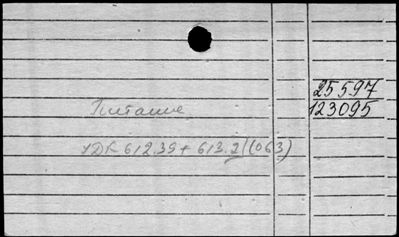 25597
123095
Питание
УДК 612.39 + 613.2](063)